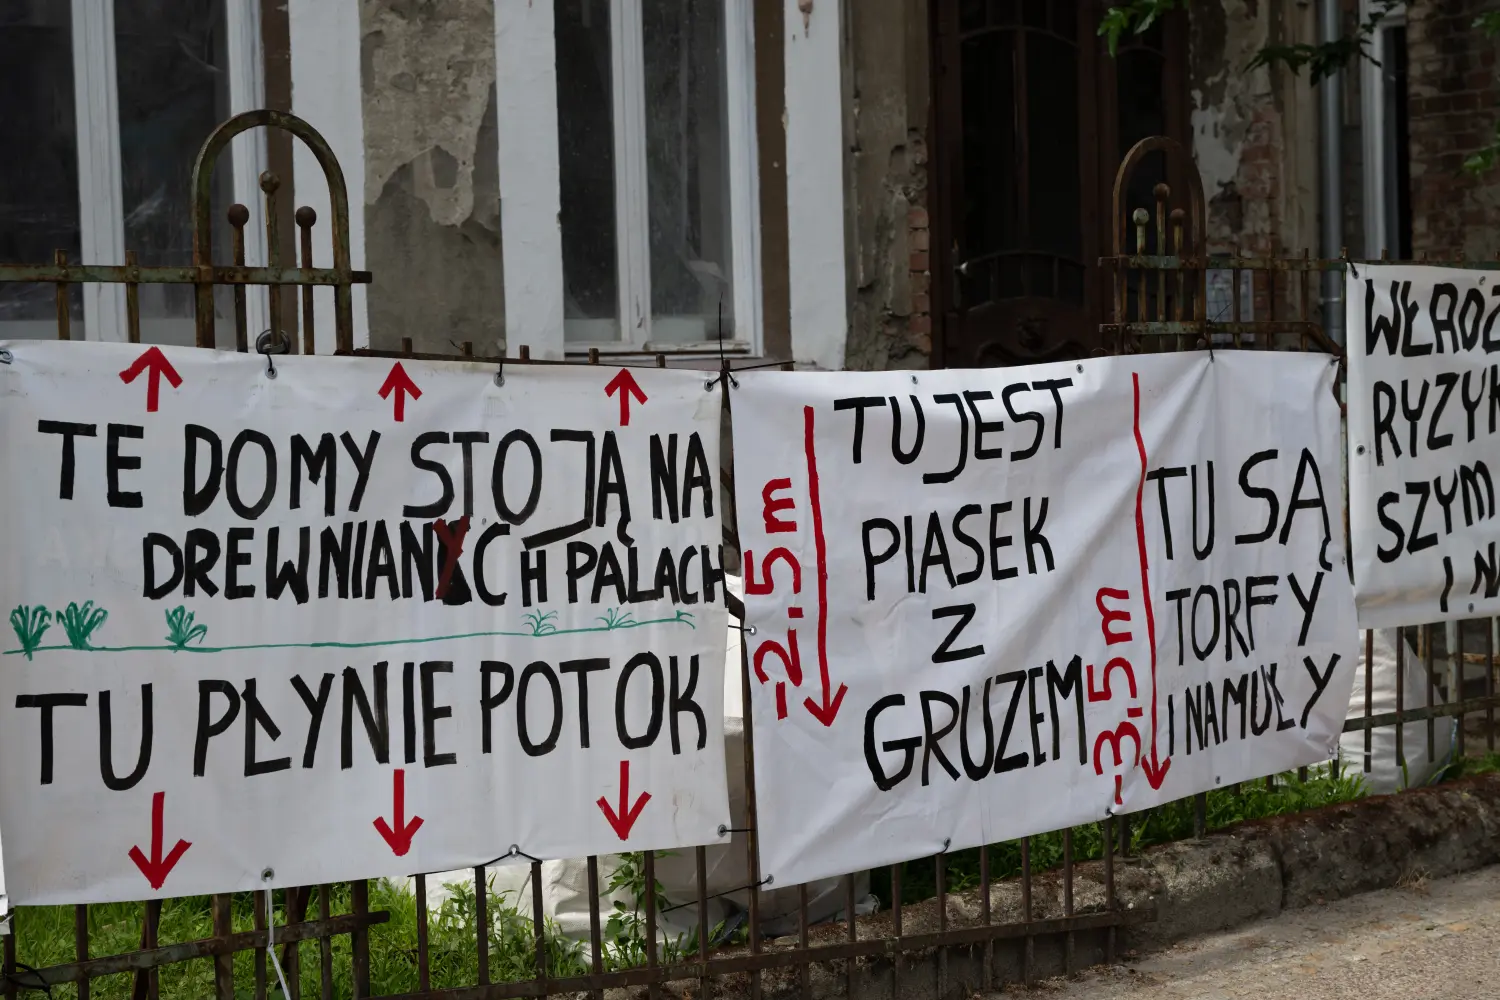 TE DOMY STOJĄ NA
DREWNIANYCH PALACH
TU PŁYNIE POTOK
-2.5m
TU JEST
PIASEK
Z
GRUZEM
-3.5m
TU SĄ
TORFY
I NAMUŁY